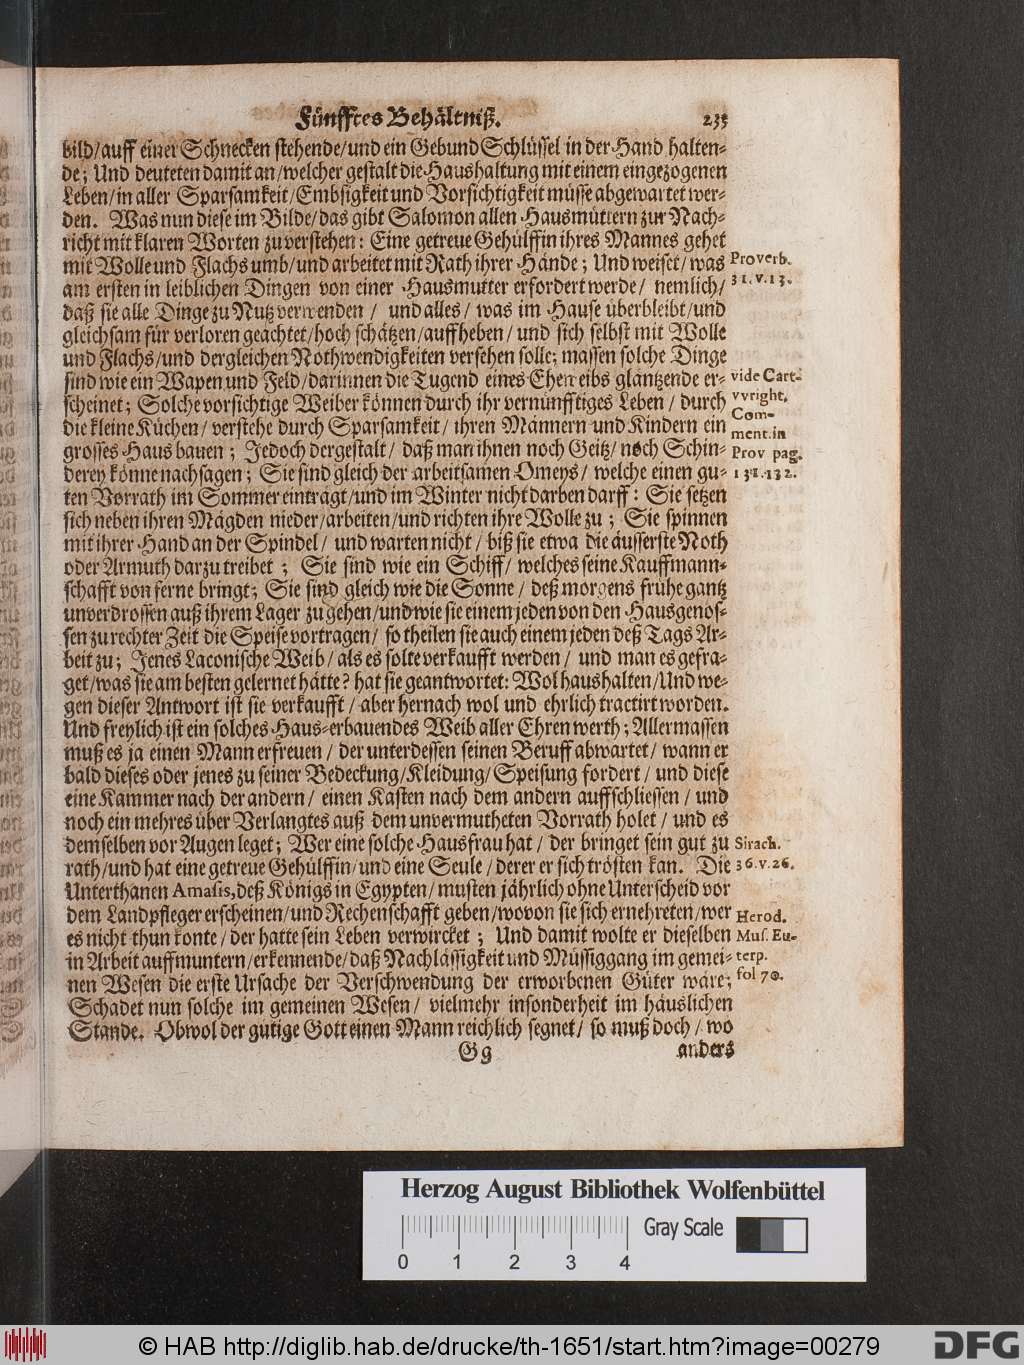 Fünfftes Behältniß. 235
bild/auff einer Schnecken stehende/und ein Gebund Schlüssel in der Hand halten-
de; Und deuteten damit an/welcher gestalt die Haushaltung mit einem eingezogenen
Leben/in aller Sparsamkeit/Embsigkeit und Vorsichtigkeit müsse abgewartet wer-
den. Was nun diese im Bilde/das gibt Salomon allen Hausmüttern zur Nach-
richt mit klaren Worten zu verstehen: Eine getreue Gehülffin ihres Mannes gehet
mit Wolle und Flachs umb/und arbeitet mit Rath ihrer Hände; Und weiset/was
am ersten in leiblichen Dingen von einer Hausmutter erfordert werde/ nemlich/
daß sie alle Dinge zu Nutz verwenden / und alles/ was im Hause überbleibt/und
gleichsam für verloren geachtet/hoch schätzen/auffheben/ und sich selbst mit Wolle
und Flachs/und dergleichen Nothwendigkeiten versehen solle; massen solche Dinge
sind wie ein Wapen und Feld/darinnen die Tugend eines Eheweibs gläntzende er-
scheinet; Solche vorsichtige Weiber können durch ihr vernünfftiges Leben/ durch
die kleine Küchen/ verstehe durch Sparsamkeit/ ihren Männern und Kindern ein
grosses Haus bauen; Jedoch dergestalt/ daß man ihnen noch Geitz/ noch Schin-
derey könne nachsagen; Sie sind gleich der arbeitsamen Omeys/ welche einen gu-
ten Vorrath im Sommer einträgt/und im Winter nicht darben darff: Sie setzen
sich neben ihren Mägden nieder/arbeiten/und richten ihre Wolle zu; Sie spinnen
mit ihrer Hand an der Spindel/ und warten nicht/ biß sie etwa die äusserste Noth
oder Armuth darzu treibet; Sie sind wie ein Schiff/ welches seine Kauffmann-
schafft von ferne bringt; Sie sind gleich wie die Sonne/ deß morgens frühe gantz
unverdrossen auß ihrem Lager zu gehen/und wie sie einem jeden von den Hausgenos-
sen zu rechter Zeit die Speise vortragen/ so theilen sie auch einem jeden deß Tags Ar-
beit zu; Jenes Laconische Weib/ als es solte verkaufft werden/ und man es gefra-
get/was sie am besten gelernet hätte? hat sie geantwortet: Wol haushalten/Und we-
gen dieser Antwort ist sie verkaufft/ aber hernach wol und ehrlich tractirt worden.
Und freylich ist ein solches Haus-erbauendes Weib aller Ehren werth; Allermassen
muß es ja einen Mann erfreuen/ der unterdessen seinen Beruff abwartet/ wann er
bald dieses oder jenes zu seiner Bedeckung/Kleidung/Speisung fordert/ und diese
eine Kammer nach der andern/ einen Kasten nach dem andern auffschliessen/ und
noch ein mehres über Verlangtes auß dem unvermutheten Vorrath holet/ und es
demselben vor Augen leget; Wer eine solche Hausfrau hat/ der bringet sein gut zu
rath/und hat eine getreue Gehülffin/und eine Seule/ derer er sich trösten kan. Die
Unterthanen Amasis, deß Königs in Egypten/ musten jährlich ohne Unterscheid vor
dem Landpfleger erscheinen/und Rechenschafft geben/wovon sie sich ernehreten/wer
es nicht thun konte/der hatte sein Leben verwircket; Und damit wolte er dieselben
in Arbeit auffmuntern/erkennende/daß Nachlässigkeit und Müssiggang im gemei-
nen Wesen die erste Ursache der Verschwendung der erworbenen Güter wäre;
Schadet nun solche im gemeinen Wesen/ vielmehr insonderheit im häuslichen
Stande. Obwol der gütige Gott einen Mann reichlich segnet/ so muß doch/ wo
Gg anders
Proverb.
31.v.13.
vide Cart-
vvright.
Com-
ment.in
Prov pag.
131.132.
Sirach.
36.v.26.
Herod.
Mus. Eu-
terp.
fol 70.
Herzog August Bibliothek Wolfenbüttel
Gray Scale
0 1 2 3 4
© HAB http://diglib.hab.de/drucke/th-1651/start.htm?image=00279
DFG